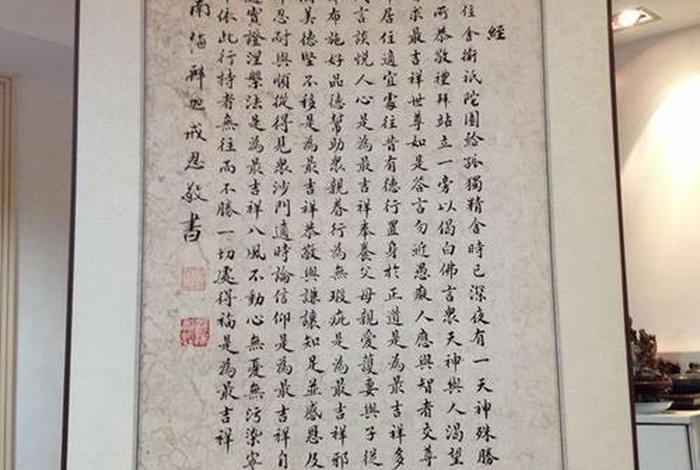 經
住舍衛祇陀園給孤獨精舍時已深夜有一天神殊勝
而恭敬禮拜站立一旁以偈白佛言眾天神與人渴望
求最吉祥世尊如是答言勿近愚癡人應與智者交尊
居住適宜處往昔有德行置身於正道是為最吉祥多
言談悅人心是為最吉祥奉養父母親愛護妻與子從
布施好品德幫助眾親眷行為無瑕疵是為最吉祥邪
美德堅不移是為最吉祥恭敬與謙讓知足並感恩及
忍耐與順從得見眾沙門適時論信仰是為最吉祥自
實證涅槃法是為最吉祥八風不動心無憂無污染寧
依此行持者無往而不勝一切處得福是為最吉祥
南海戒忍敬書